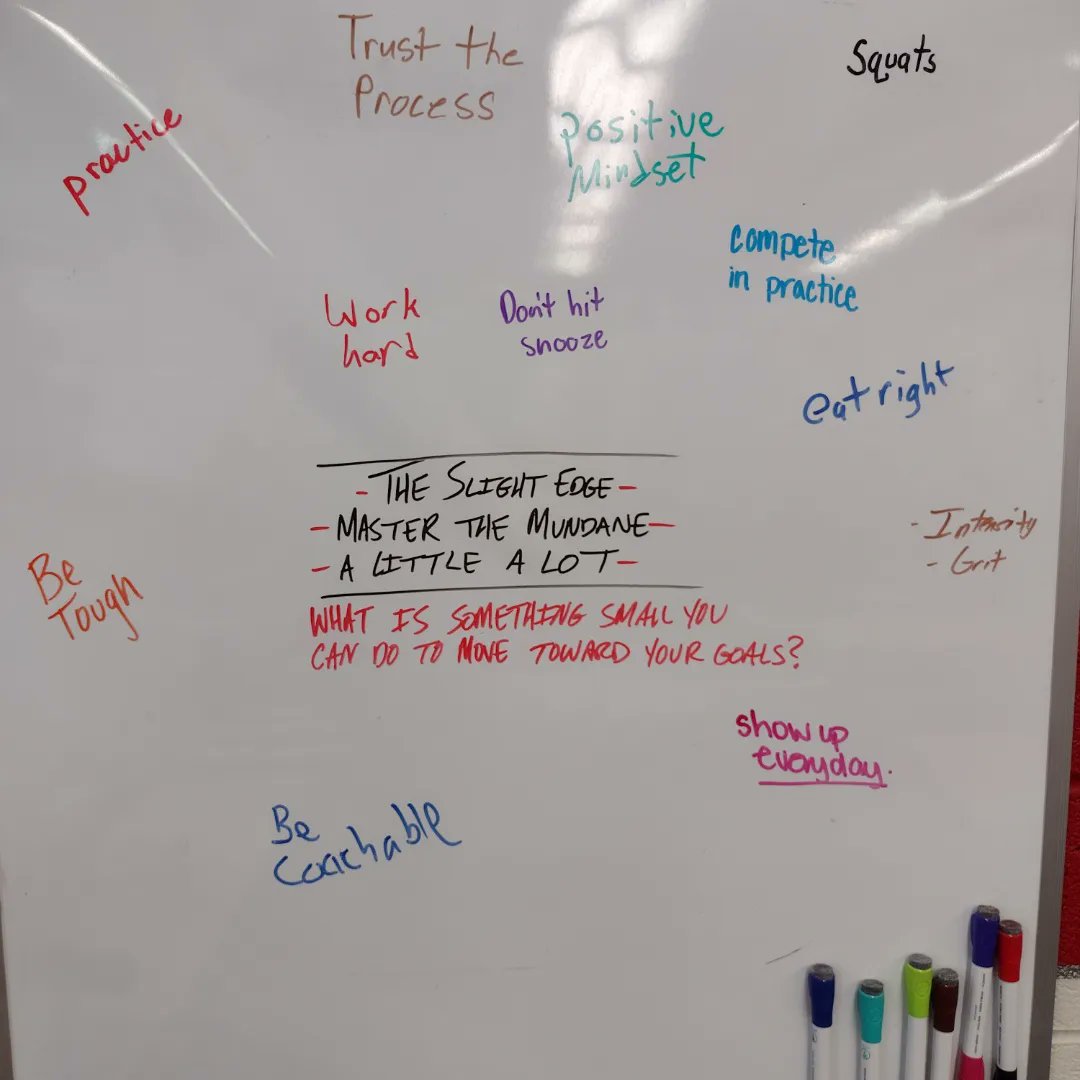 Trust the
Process
Squats
practice
positive
Mindset
compete
in practice
Work
hard
Don't hit
snooze
eat right
- THE SLIGHT EDGE -
- MASTER THE MUNDANE -
- A LITTLE A LOT -
WHAT IS SOMETHING SMALL YOU
CAN DO TO MOVE TOWARD YOUR GOALS?
- Intensity
- Grit
Be
Tough
show up
everyday.
Be
Coachable